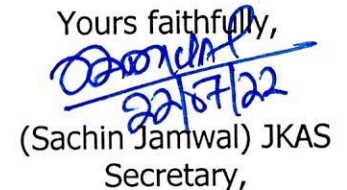 Yours faithfully,
22/07/22
(Sachin Jamwal) JKAS
Secretary,